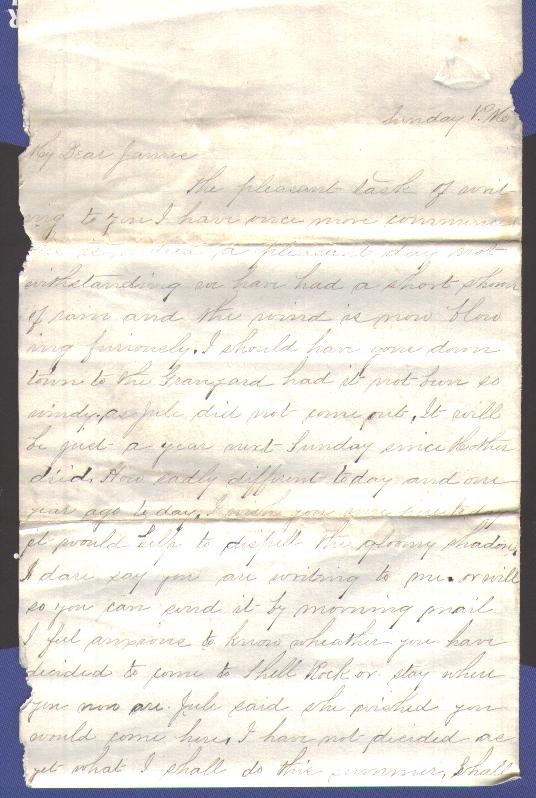 Sunday P. M.
My Dear Jamie
The pleasant task of writ
ing to you I have once more commenced
a pleasant day not
withstanding we have had a short shower
of rain and the wind is now blow
ing furiously. I should have gone down
town to the Graveyard had it not been so
windy, as Jule did not come out. It will
be just a year next Sunday since Mother
died. How sadly different today and one
year ago today. I wish you were here
it would help to dispell the gloomy shadow.
I dare say you are writing to me. or will
so you can send it by morning mail
I feel anxious to know wheather you have
decided to come to Shell Rock or stay where
you now are. Jule said she wished you
would come here. I have not decided as
yet what I shall do this summer. Shall